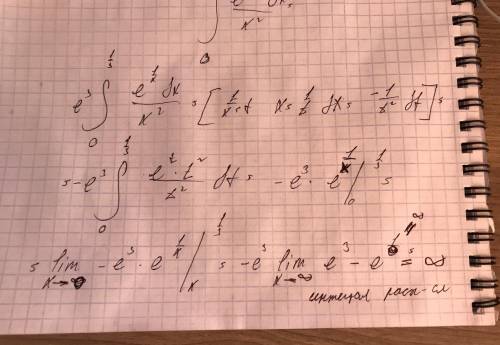 ∫₀ e^… dx / x²
e³ ∫₀^{1/3} e^{1/x} dx / x² = [ 1/x = t   x = 1/t   dx = -1/t² dt ] =
= -e³ ∫₀^{1/3} e^t · t² / t² dt = -e³ · e^{1/x} |₀^{1/3} =
= lim_{x→0} -e³ · e^{1/x} |ₓ^{1/3} = -e³ lim_{x→∞} e³ - e^{…} = ∞
интеграл расх-ся